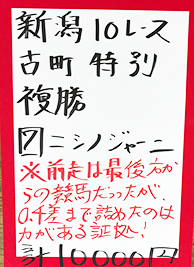 新潟10レース
古町特別
複勝
7ニシノジャーニー
※前走は最後方か
らの競馬だったが、
0.4差まで詰めたのは
力がある証拠!
計10000円